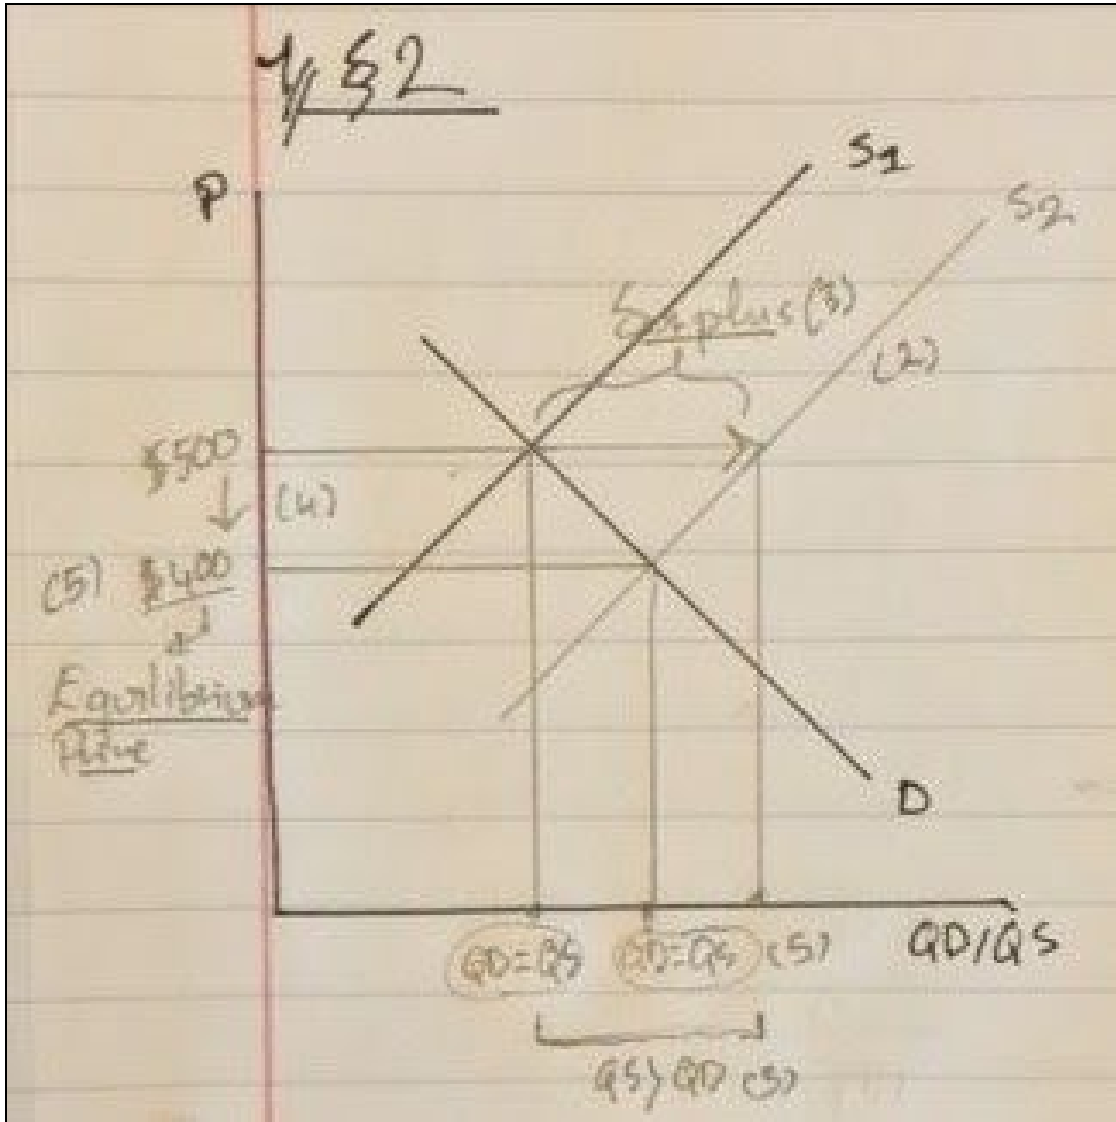 1/ & 2
P
S1
S2
Surplus (3)
(2)
$500
(4)
(5) $400
Equilibrium
Price
D
QD=QS QD=QS (5) QD/QS
QS>QD (3)